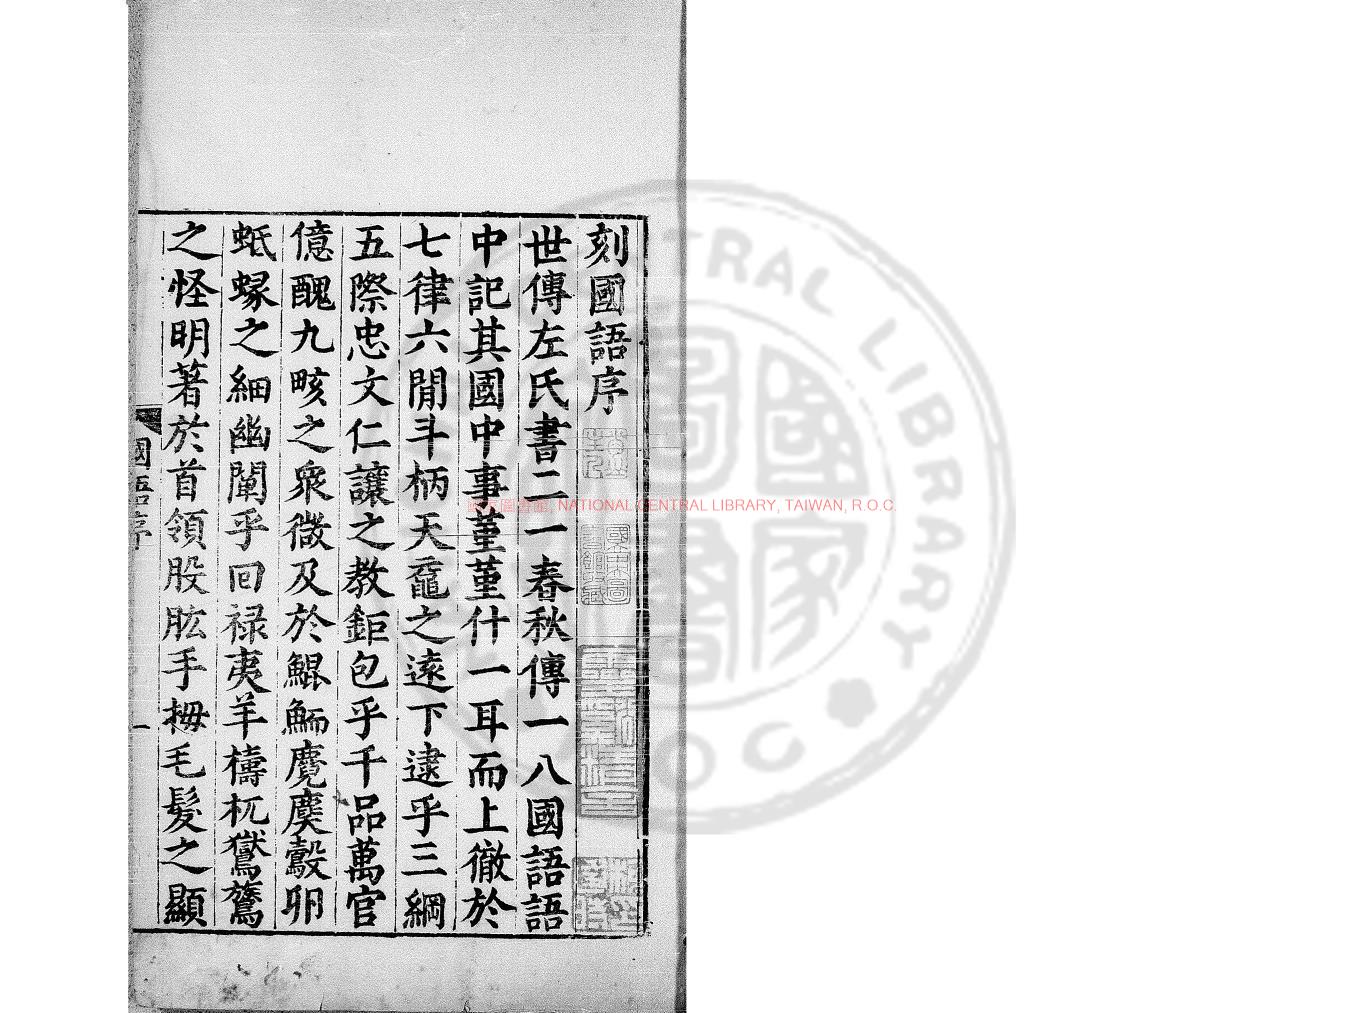 刻國語序
世傳左氏書二一春秋傳一八國語語
中記其國中事菫菫什一耳而上徹於
七律六閒斗柄天黿之遠下逮乎三綱
五際忠文仁讓之教鉅包乎千品萬官
億醜九畡之衆微及於鯤鮞麑麌鷇卵
蚳蝝之細幽闡乎回祿夷羊檮杌鸑鷟
之怪明著於首領股肱手拇毛髮之顯
國語序
一
國家圖書館, NATIONAL CENTRAL LIBRARY, TAIWAN, R.O.C.